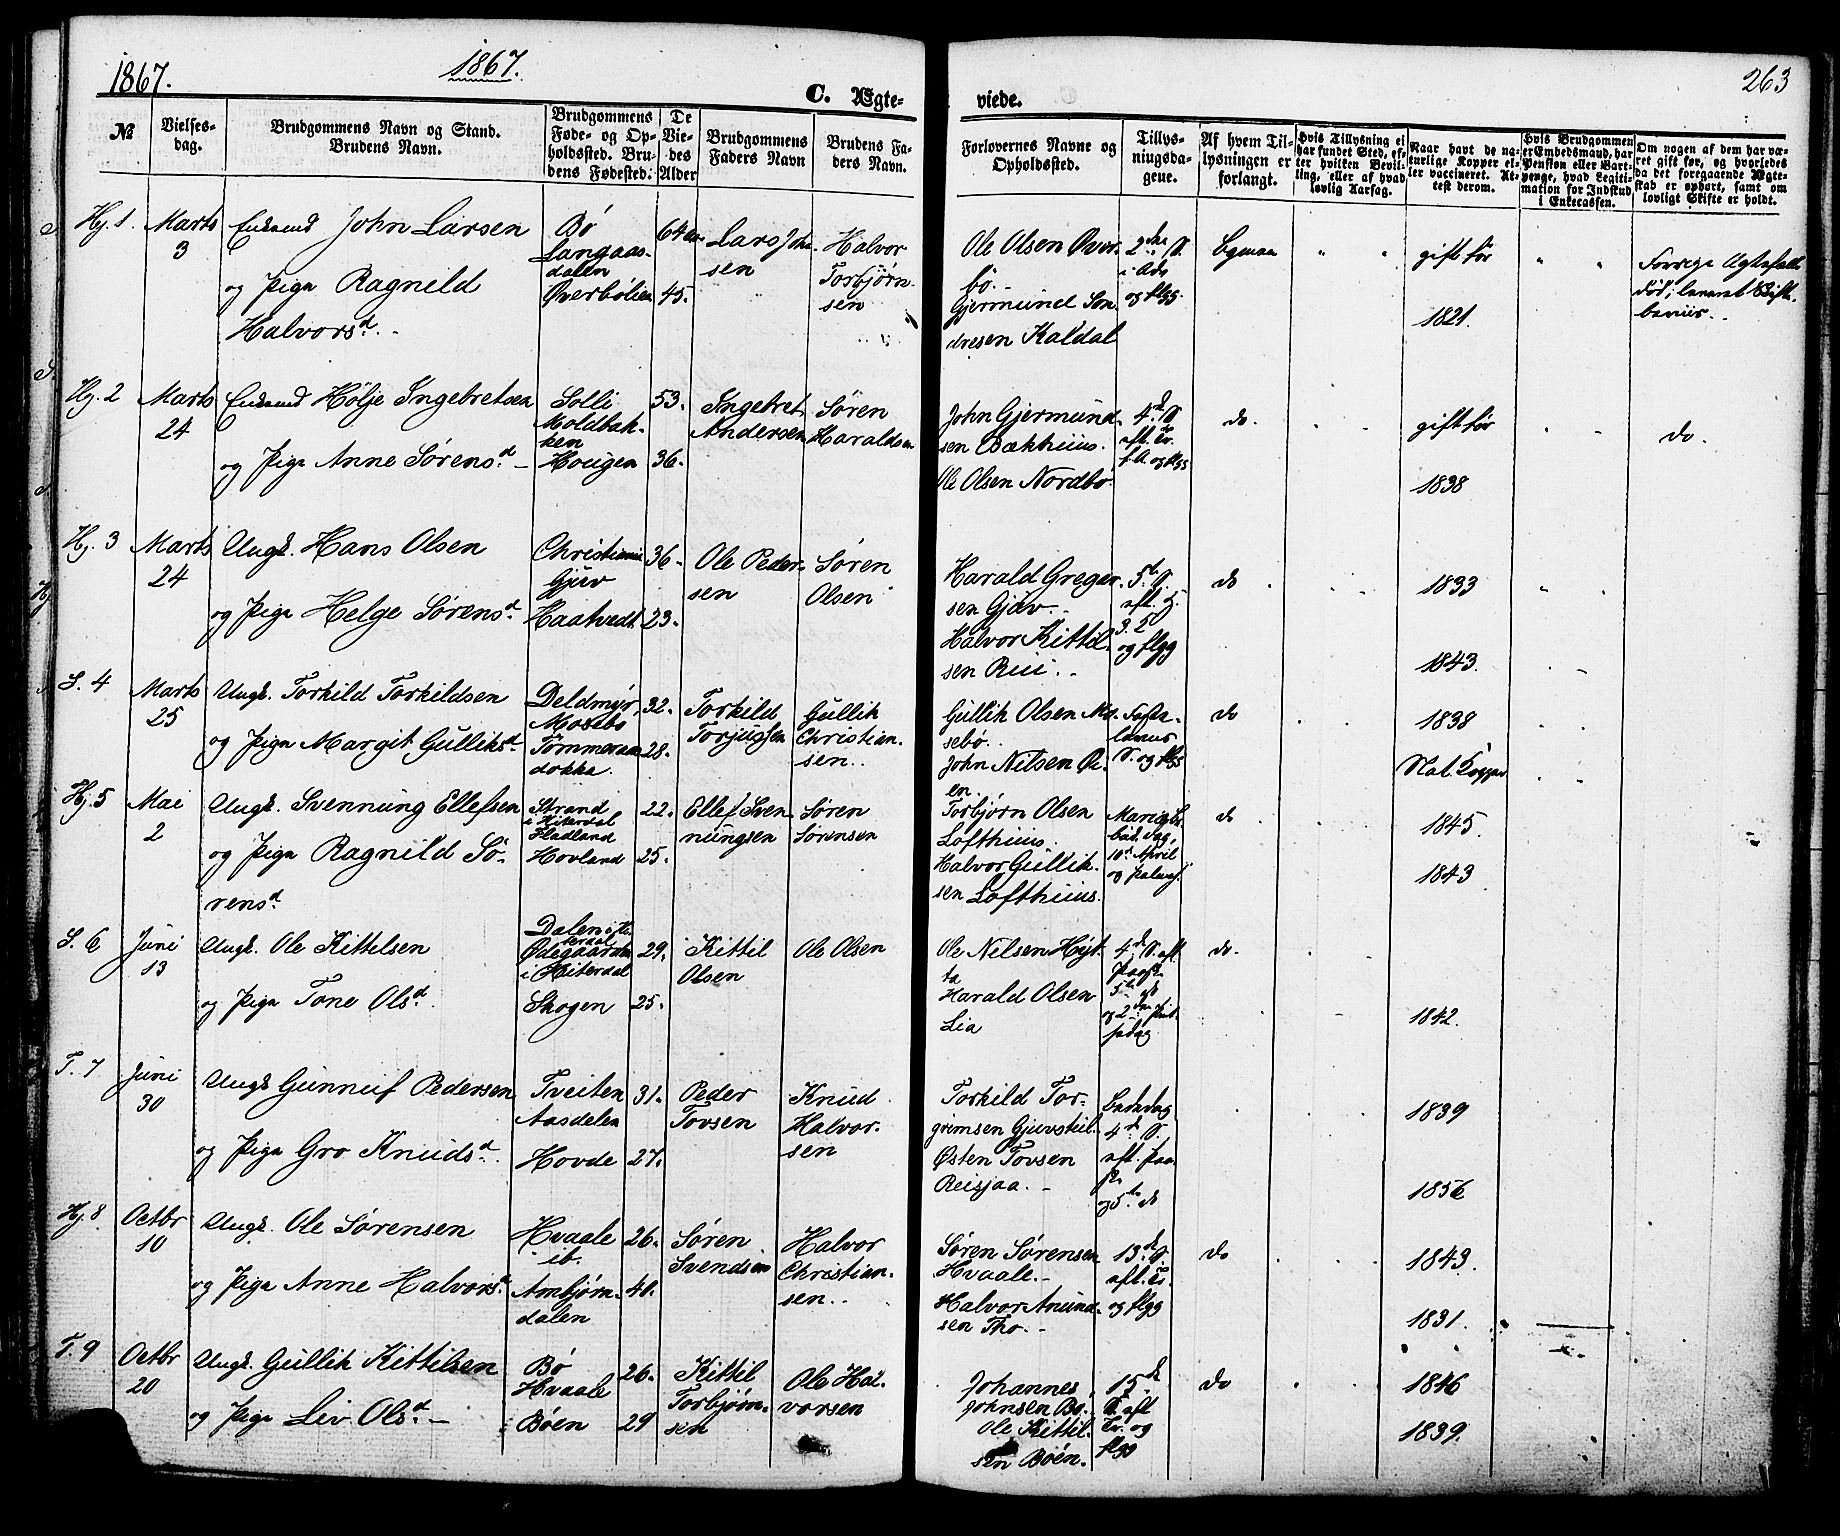 1867.
1867.
263
C. Ægte-
viede.
№
Vielses-
dag.
Brudgommens Navn og Stand.
Brudens Navn.
Brudgommens
Føde- og Op-
holdssted. Bru-
dens Fødested.
De
Vie-
des
Alder
Brudgommens
Faders Navn
Brudens Fa-
ders Navn.
Forlovernes Navne og
Opholdssted.
Tillys-
ningsda-
gene.
Af hvem Til-
lysningen er
forlangt.
Hvis Tillysning ei
har fundet Sted, ef-
ter hvilken Bevil-
ling, eller af hvad
lovlig Aarsag.
Naar havt de na-
turlige Kopper el-
ler vaccineret. At-
test derom.
Hvis Brudgommen
er Embedsmand, har
Pension eller Vart-
penge, hvad Legiti-
mation for Indskud
i Enkecassen.
Om nogen af dem har væ-
ret gift før, og hvorledes
da det foregaaende Ægte-
skab er ophørt, samt om
lovligt Skifte er holdt.
Hj. 1.
Marts
3
Enkemd John Larsen
og Pige Ragnild
Halvorsd.
Bø
Langaas-
dalen
Øverbøien
64
45.
Lars John-
sen
Halvor
Torbjørn-
sen
Ole Olsen Øver-
bø.
Gjermund Sen-
dresen Kaldal
og flgg.
Egman
gift før
1821.
Forrige Ægtefælle
død;
Hj. 2
Marts
24
Enkemd Hølje Ingebretsen
og Pige Anne Sørensd.
Solli
Moldbak-
ken
Hougen
53.
36.
Ingebret
Andersen
Søren
Haraldsen
John Gjermund-
sen Bækhuus.
Ole Olsen Nordbø.
4d. S.
aft. Tr.
f. A. og flgg
do.
gift før
1838
do.
Hj. 3
Marts
24
Ungk. Hans Olsen
og Pige Helge Sørensd.
Christiania
Gjuv
Haatvedt
36.
23.
Ole Peder-
sen
Søren
Olsen
Harald Gregar-
sen Gjuv.
Halvor Kittil-
sen Rui.
5te S.
og flgg
do
1833
1843.
S. 4
Marts
25
Ungk. Torkild Torkildsen
og Pige Margit Gulliksd.
Deldmyr,
Mosebø
Tømmeraas-
dokka.
32.
28.
Torkild
Torjussen
Gullik
Christian-
sen.
Gullik Olsen Mo-
sebø.
John Nilsen Ør-
en.
Faste-
lavns
S. og flgg
do
1838
Nat. Kopper
Hj. 5
Mai
2
Ungk. Svennung Ellefsen
og Pige Ragnild Sø-
rensd.
Strand
i Hiterdal
Fladland
Hovland
22.
25.
Ellef Sven-
nungsen
Søren
Sørensen
Torbjørn Olsen
Lofthuus.
Halvor Gullik-
sen Lofthuus.
Mariæ Be-
bud. Dag,
10de April
og Palmes.
do
1845.
1843
S. 6
Juni
13
Ungk. Ole Kittelsen
og Pige Tone Olsd.
Dalen i Hi-
terdal
Ødegaarden
i Hiterdal
Skogen
29.
25.
Kittil
Olsen
Ole Olsen
Ole Nilsen Hyt-
ta
Harald Olsen
Lia
4de S. aft.
Paaske
5te do
og 2den Pint-
sedag
do.
1842.
T. 7
Juni
30
Ungk Gunnuf Pedersen
og Pige Gro Knudsd.
Tveiten
Aasdelen
Hovde
31.
27.
Peder
Tovsen
Knud
Halvor-
sen
Torkild Tor-
grimsen Gjuvskil.
Østen Tovsen
Reisjaa.
Bededag
4de S.
aft. Paa-
ske
og 5te do
1839
1856
Hj. 8
Octbr
10
Ungk. Ole Sørensen
og Pige Anne Halvorsd.
Hvaale
ib.
Ambjørn-
dalen
26.
40.
Søren
Svendsen
Halvor
Christian-
sen.
Søren Sørensen
Hvaale.
Halvor Anund-
sen Tho.
13de S.
aft. Tr.
og flgg
do
1843.
1831.
T. 9
Octbr
20
Ungk. Gullik Kittilsen
og Pige Liv Olsd.
Bø
Hvaale
Bøen
26.
29
Kittil
Torbjørn-
sen
Ole Hal-
vorsen
Johannes
Johnsen Bø.
Ole Kittil-
sen Bøen.
15de
S. aft
Tr. og
flgg
do
1846
1839.